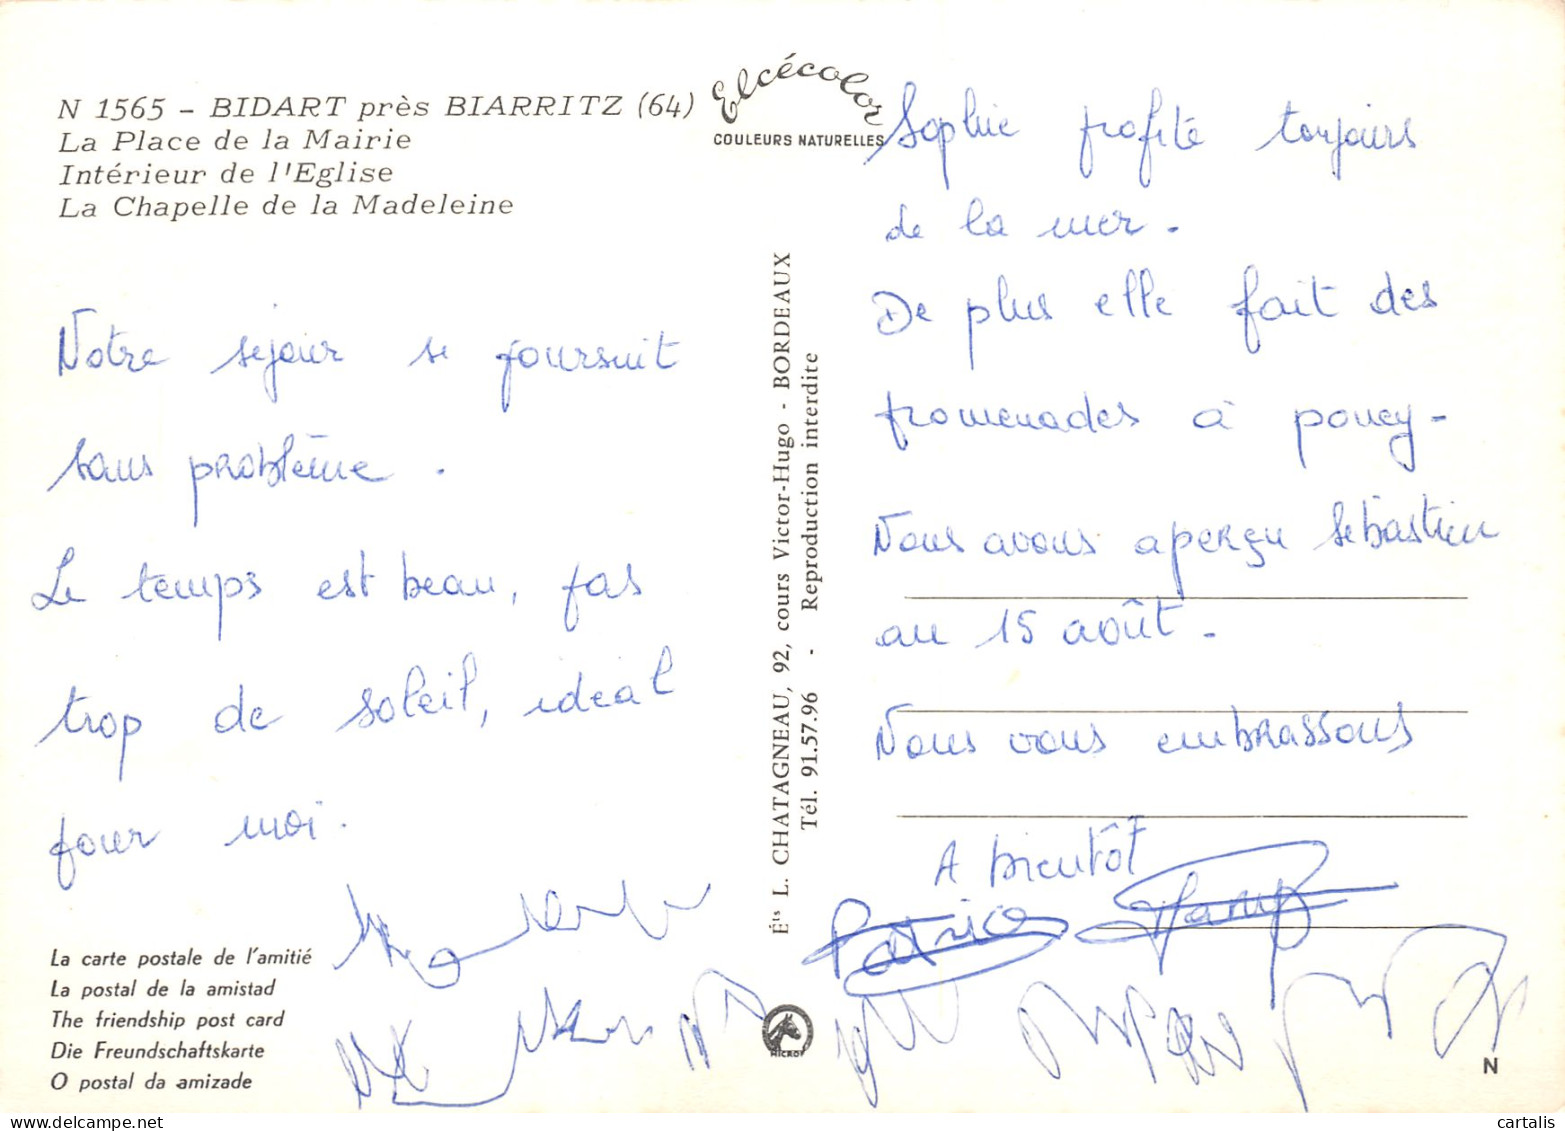 N 1565 - BIDART près BIARRITZ (64)
La Place de la Mairie
Intérieur de l'Eglise
La Chapelle de la Madeleine
Elcécolor
COULEURS NATURELLES
Notre séjour se poursuit
sans problème.
Le temps est beau, pas
trop de soleil, idéal
pour moi.
La carte postale de l'amitié
La postal de la amistad
The friendship post card
Die Freundschaftskarte
O postal da amizade
Éts L. CHATAGNEAU, 92, cours Victor-Hugo - BORDEAUX
Tél. 91.57.96 - Reproduction interdite
MICRO
Sophie profite toujours
de la mer.
De plus elle fait des
promenades à poney-
Nous avons aperçu Sébastien
au 15 août.
Nous vous embrassons
A bientôt
Patrice
N
cartalis